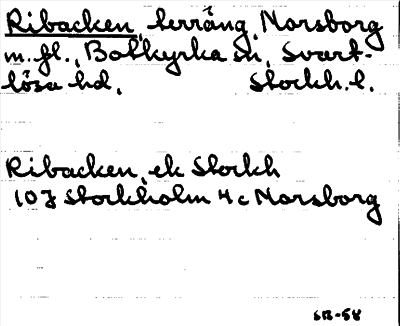 Ribacken, terräng, Norsborg
m.fl., Botkyrka sn, Svart-
lösa hd, Stockh. l.
Ribacken, ek Stockh
10 J Stockholm 4 c Norsborg
SR-58